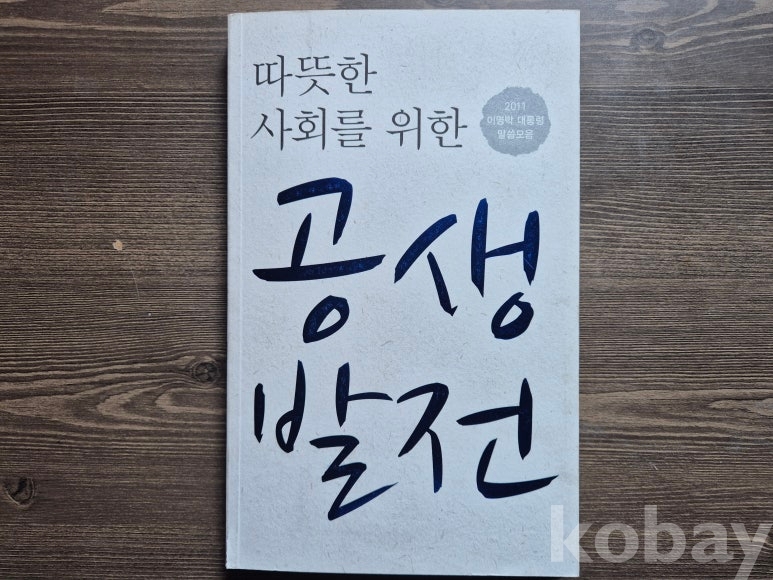 따뜻한
사회를 위한
2011
이명박 대통령
말씀모음
공생
발전
kobay